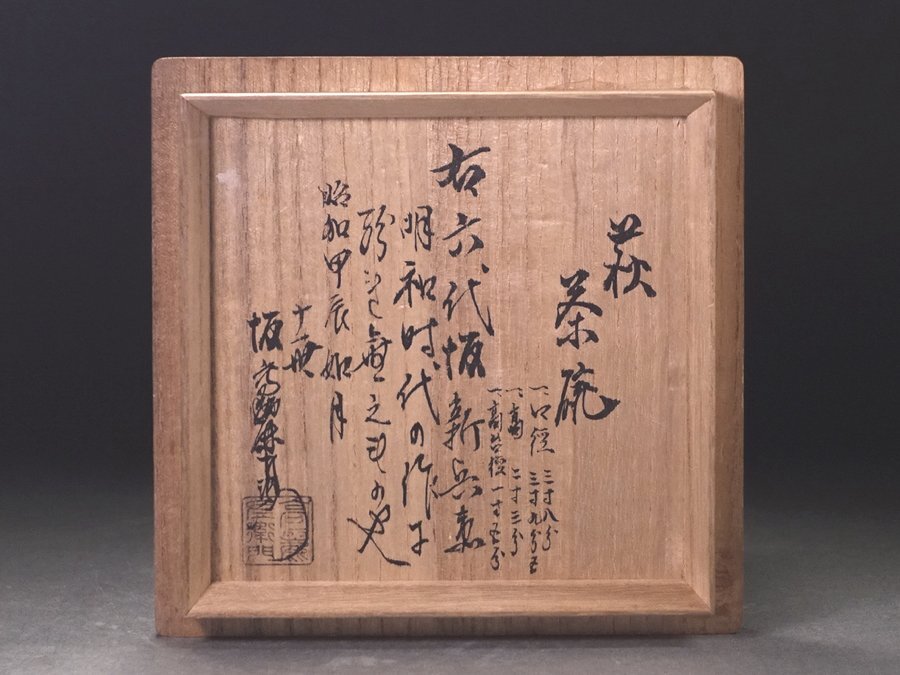 萩
茶碗
一、口径 三寸八分
三寸九分五
一、高 二寸三分
一、高台径 一寸五分
右六代坂新兵衛
明和時代の作に
紛も無之ものや
昭和甲辰如月
十一世
坂高麗左衛門